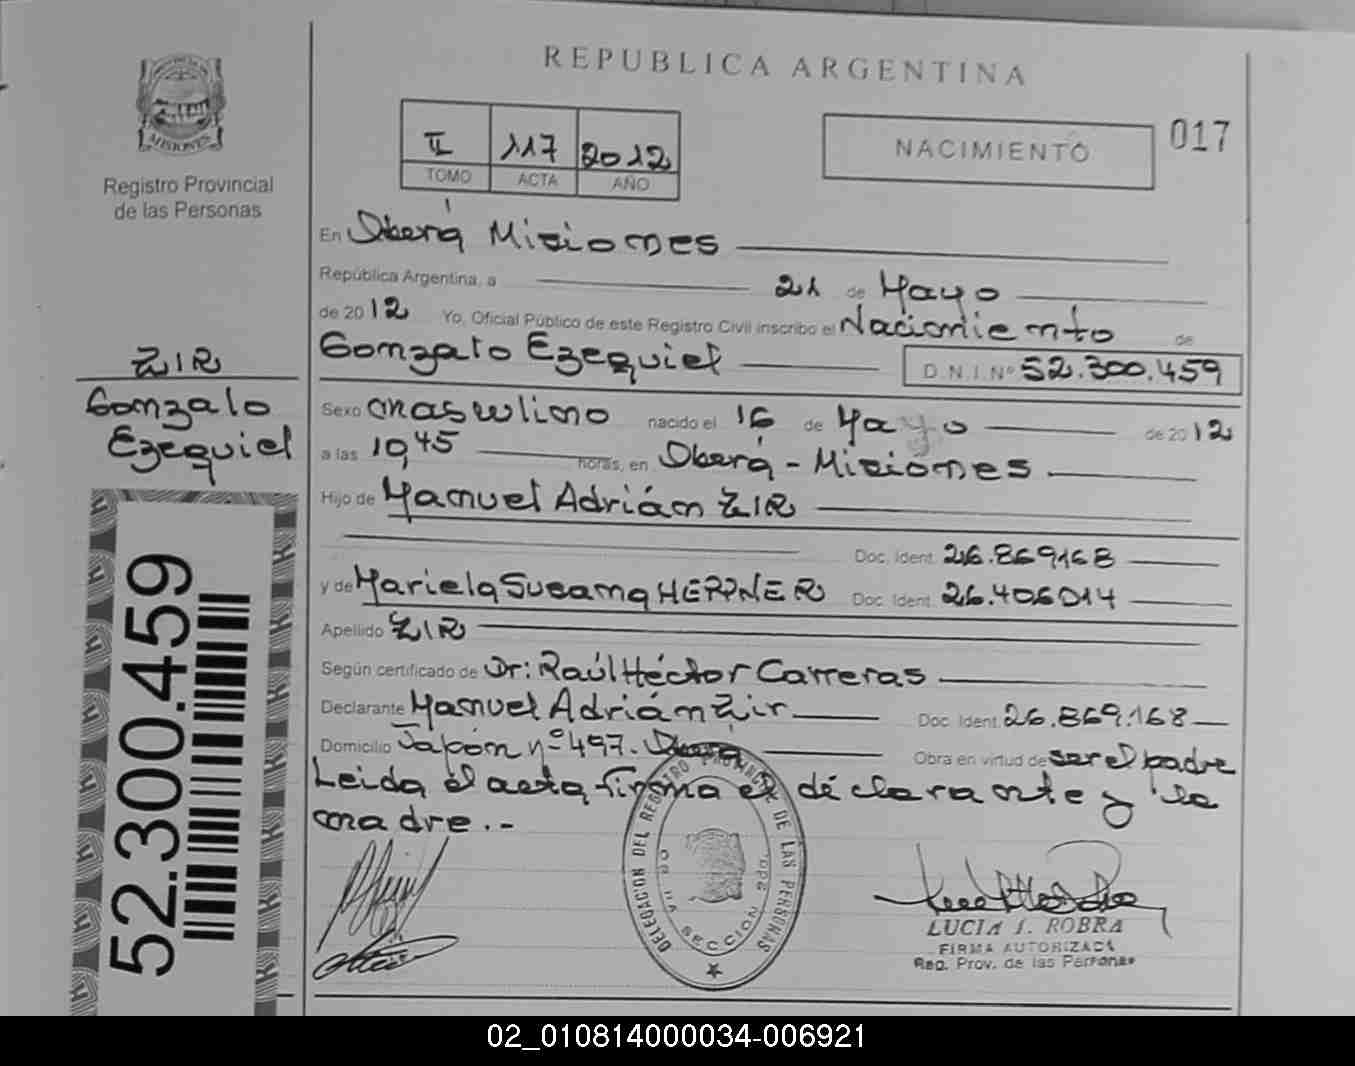 REPUBLICA ARGENTINA
MISIONES
Registro Provincial
de las Personas
II 117 2012
TOMO ACTA AÑO
NACIMIENTO
017
En Oberá Misiones
República Argentina, a 21 de Mayo
de 2012 Yo, Oficial Público de este Registro Civil inscribo el Nacimiento de
Gonzalo Ezequiel D.N.I. Nº 52.300.459
ZIR
Gonzalo
Ezequiel
52.300.459
Sexo masculino nacido el 16 de Mayo de 2012
a las 19,45 horas, en Oberá - Misiones
Hijo de Manuel Adrián ZIR
Doc. Ident. 26.869168
y de Mariela Susana HEPPNER Doc. Ident. 26.406014
Apellido ZIR
Según certificado de Dr: Raúl Héctor Carreras
Declarante Manuel Adrián Zir Doc. Ident. 26.869.168
Domicilio Japón nº 497. Oberá Obra en virtud de ser el padre
Leida el acta firma el declarante y la
madre.-
DELEGACION DEL REGISTRO PROVINCIAL DE LAS PERSONAS
SECCION
LUCIA I. ROBRA
FIRMA AUTORIZADA
Reg. Prov. de las Personas
02_010814000034-006921